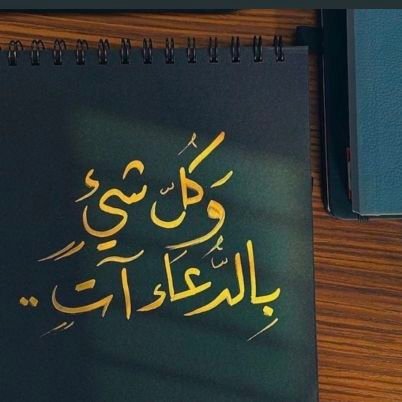 وَكُلُّ شيءٍ
بِالدُّعَاء آتٍ ..